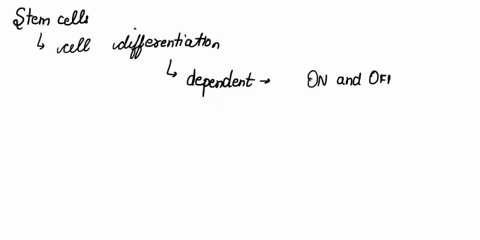 Stem cells
↳ cell differentiation
↳ dependent → ON and OF